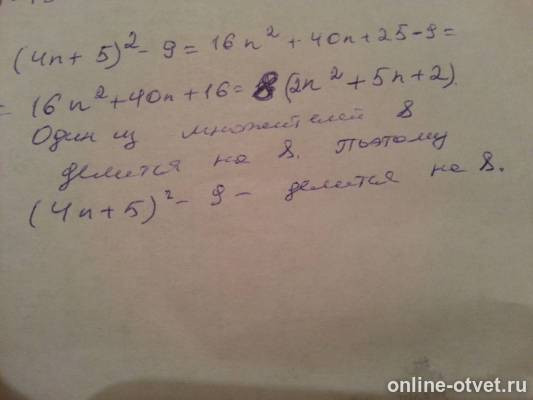 (4n+5)²-9=16n²+40n+25-9=
=16n²+40n+16=8(2n²+5n+2).
Один из множителей 8
делится на 8. Поэтому
(4n+5)²-9- делится на 8.
online-otvet.ru